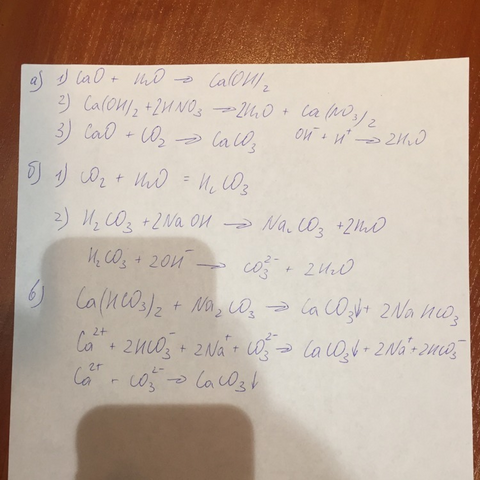 а) 1) CaO + H₂O → Ca(OH)₂
2) Ca(OH)₂ + 2HNO₃ → 2H₂O + Ca(NO₃)₂
3) CaO + CO₂ → CaCO₃ OH⁻ + H⁺ → 2H₂O
б) 1) CO₂ + H₂O = H₂CO₃
2) H₂CO₃ + 2NaOH → Na₂CO₃ + 2H₂O
H₂CO₃ + 2OH⁻ → CO₃²⁻ + 2H₂O
в) Ca(HCO₃)₂ + Na₂CO₃ → CaCO₃↓ + 2NaHCO₃
Ca²⁺ + 2HCO₃⁻ + 2Na⁺ + CO₃²⁻ → CaCO₃↓ + 2Na⁺ + 2HCO₃⁻
Ca²⁺ + CO₃²⁻ → CaCO₃↓